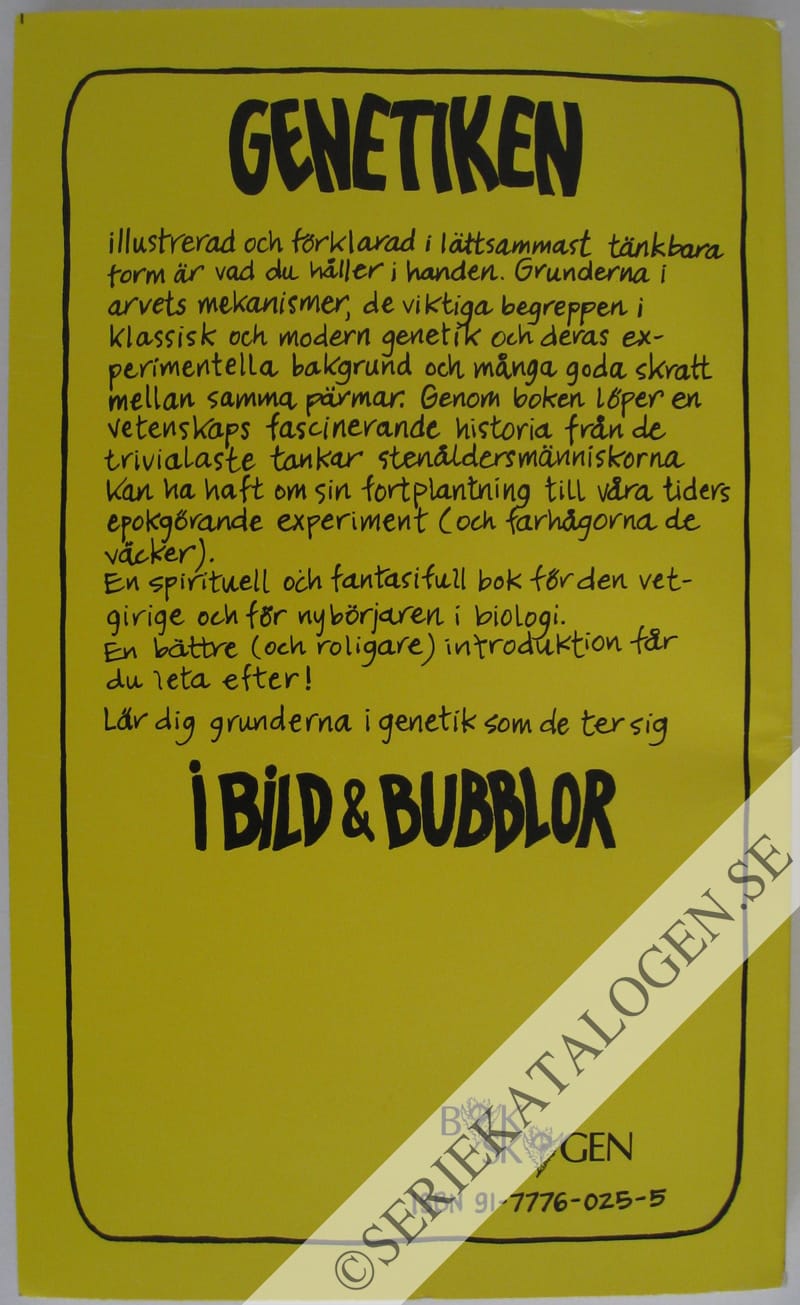 GENETIKEN
illustrerad och förklarad i lättsammast tänkbara
form är vad du håller i handen. Grunderna i
arvets mekanismer, de viktiga begreppen i
klassisk och modern genetik och deras ex-
perimentella bakgrund och många goda skratt
mellan samma pärmar. Genom boken löper en
vetenskaps fascinerande historia från de
trivialaste tankar stenåldersmänniskorna
kan ha haft om sin fortplantning till våra tiders
epokgörande experiment (och farhågorna de
väcker).
En spirituell och fantasifull bok för den vet-
girige och för nybörjaren i biologi.
En bättre (och roligare) introduktion får
du leta efter!
Lär dig grunderna i genetik som de ter sig
i BiLD & BUBBLOR
BOK
SKOGEN
ISBN 91-7776-025-5
©SERIEKATALOGEN.SE